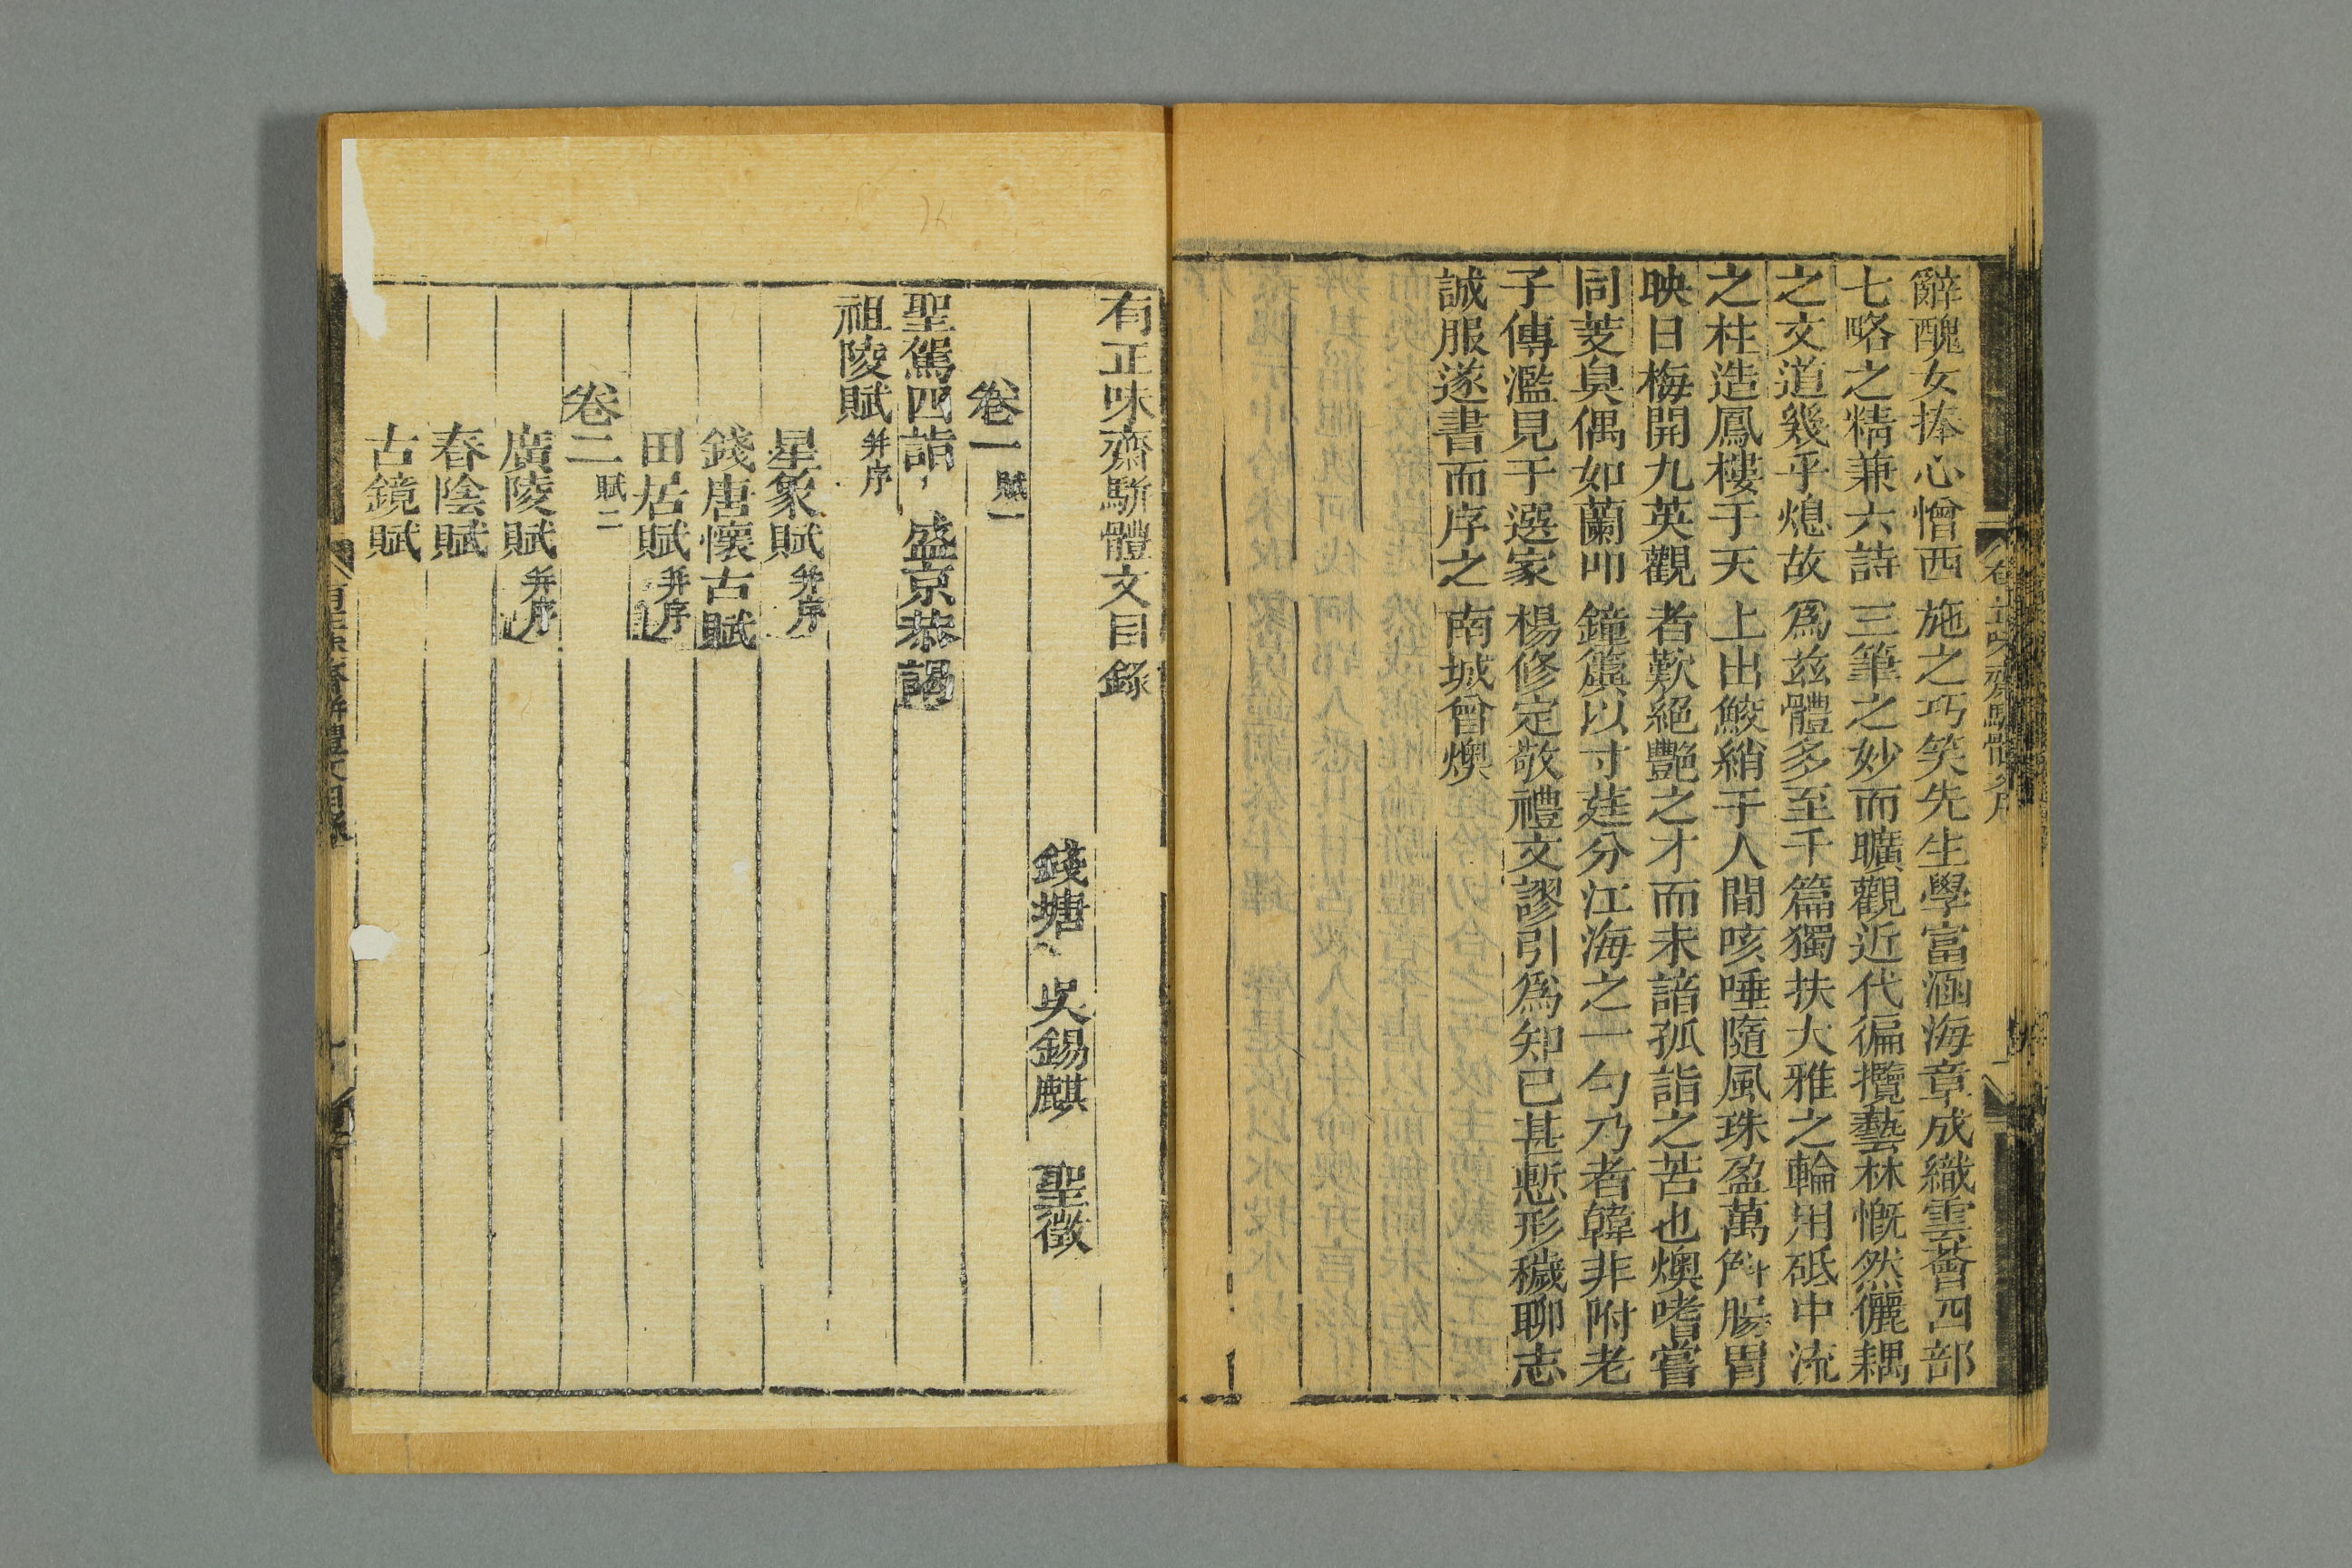 辭醜女捧心憎西施之巧笑先生學富涵海章成織雲薈四部
七略之精兼六詩三筆之妙而曠觀近代徧攬藝林慨然儷耦
之文道幾乎熄故爲兹體多至千篇獨扶大雅之輪用砥中流
之柱造鳳樓于天上出鮫綃于人間咳唾隨風珠盈萬斛腸胃
映日梅開九英觀者歎絕艷之才而未諳孤詣之苦也燠嗜嘗
同芰臭偶如蘭叩鐘簴以寸莛分江海之一勺乃者韓非附老
子傳濫見于選家楊修定敬禮文謬引爲知己甚慙形穢聊志
誠服遂書而序之南城曾燠
有正味齋駢體文目錄
錢塘 吳錫麒 聖徵
卷一 賦一
聖駕四詣 盛京恭謁
祖陵賦 并序
星象賦 并序
錢唐懷古賦
田居賦 并序
卷二 賦二
廣陵賦 并序
春陰賦
古鏡賦